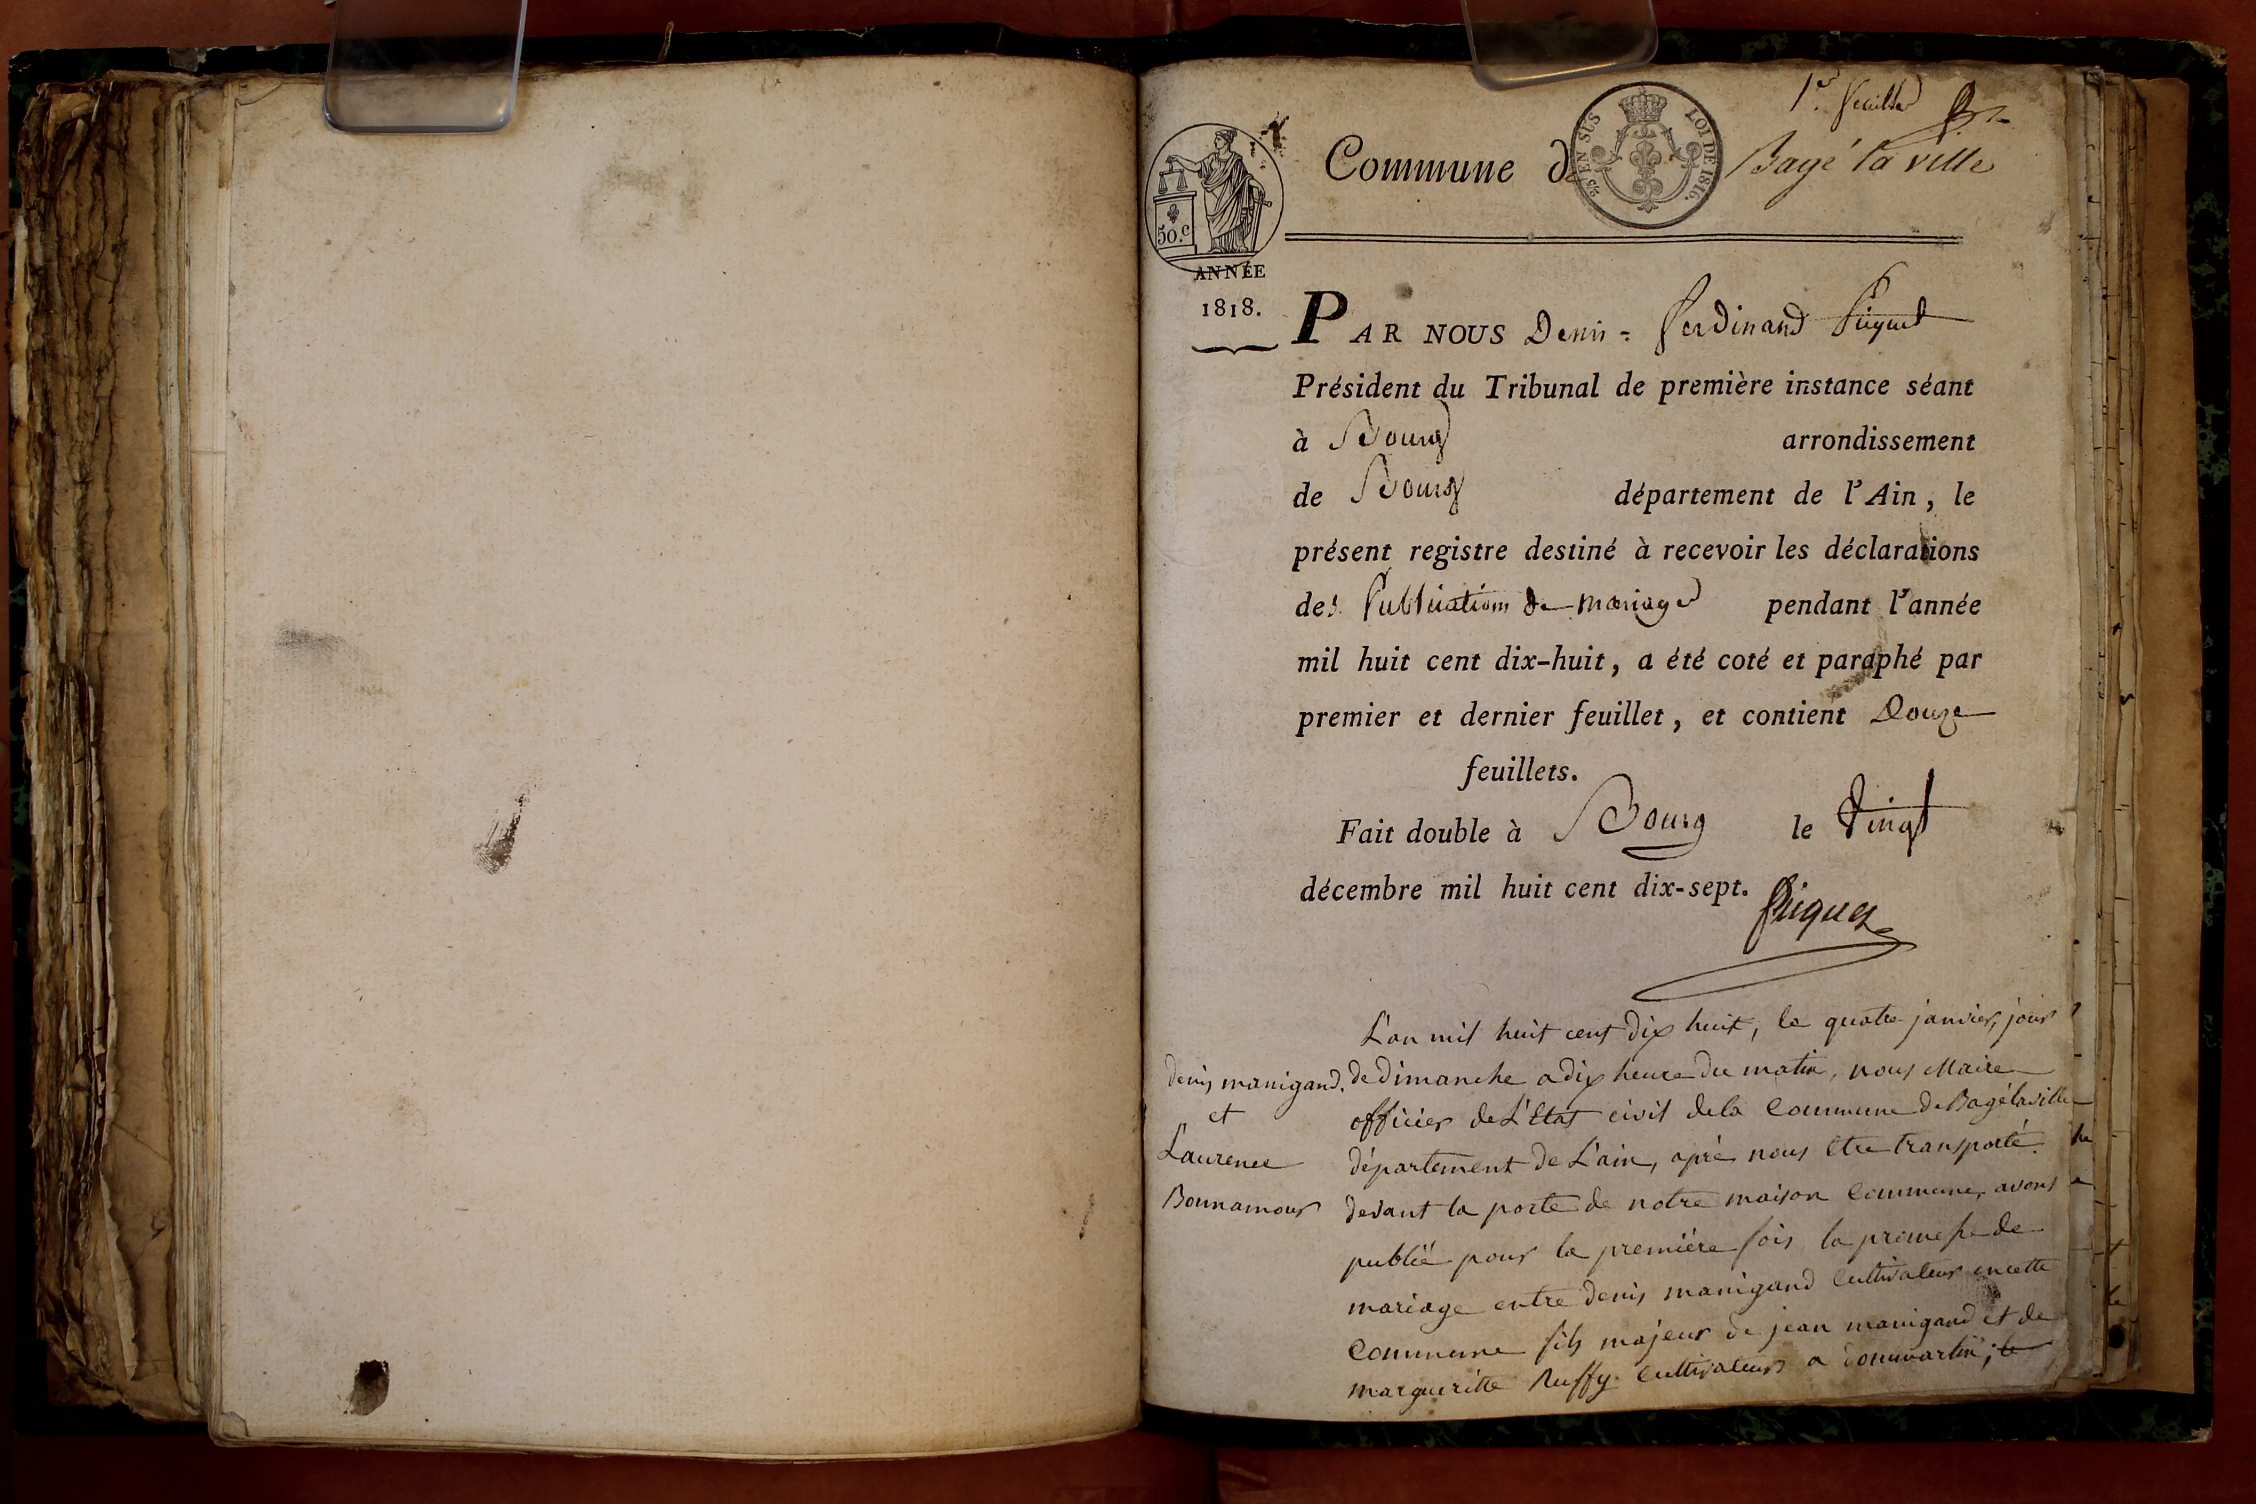 1er feuillet
Commune de Bagé la ville
EN SUS
LOI DE 1816.
50.c
ANNÉE
1818.
PAR NOUS Denis = Ferdinand Piquet
Président du Tribunal de première instance séant
à Bourg arrondissement
de Bourg département de l'Ain, le
présent registre destiné à recevoir les déclarations
des Publications de mariages pendant l'année
mil huit cent dix-huit, a été coté et paraphé par
premier et dernier feuillet, et contient Douze
feuillets.
Fait double à Bourg le Vingt
décembre mil huit cent dix-sept.
Piquet
denis manigand.
et
Laurence
Bonnamour
L'an mil huit cent dix huit, le quatre janvier, jour
de dimanche a dix heure du matin, nous Maire
officier de L'Etat civil de la Commune de Bagé la ville
département de L'ain, aprè nous etre transporté
devant la porte de notre maison Commune, avons
publié pour la premiére fois la promesse de
mariage entre denis manigand Cultivateur en cette
Commune fils majeur de jean manigand et de
margueritte Ruffy Cultivateurs a dommartin; le